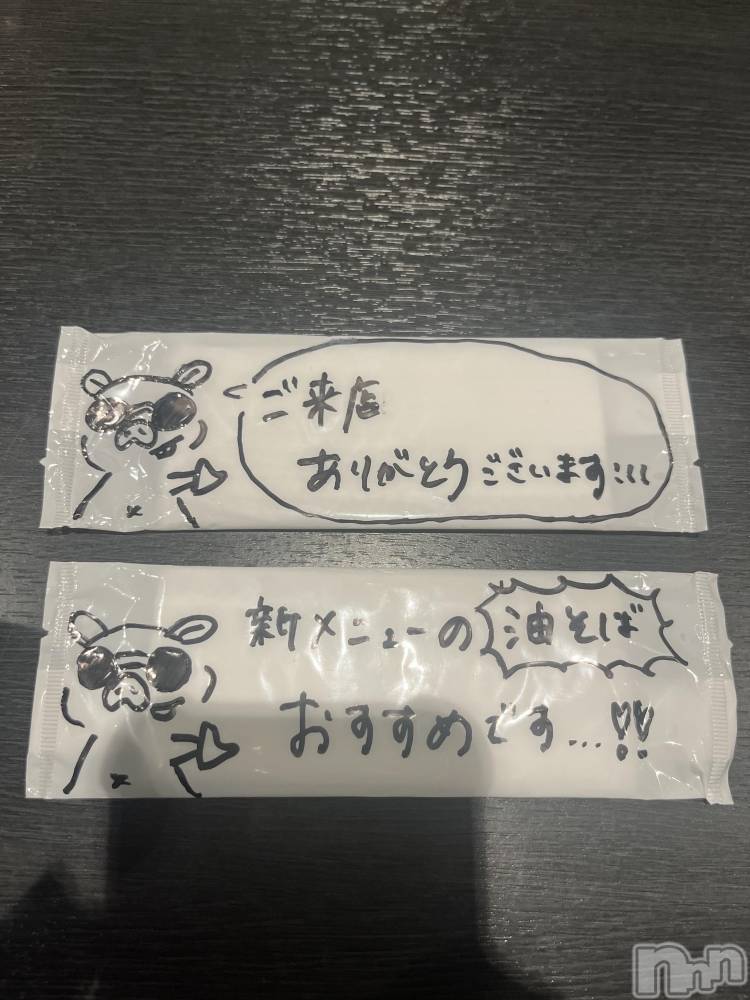 ご来店
ありがとうございます...
新メニューの油そば
おすすめです...!!
nnn